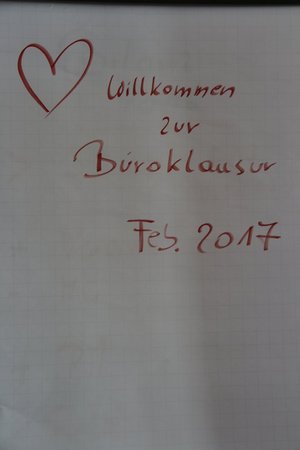 Willkommen
zur
Büroklausur
Feb. 2017